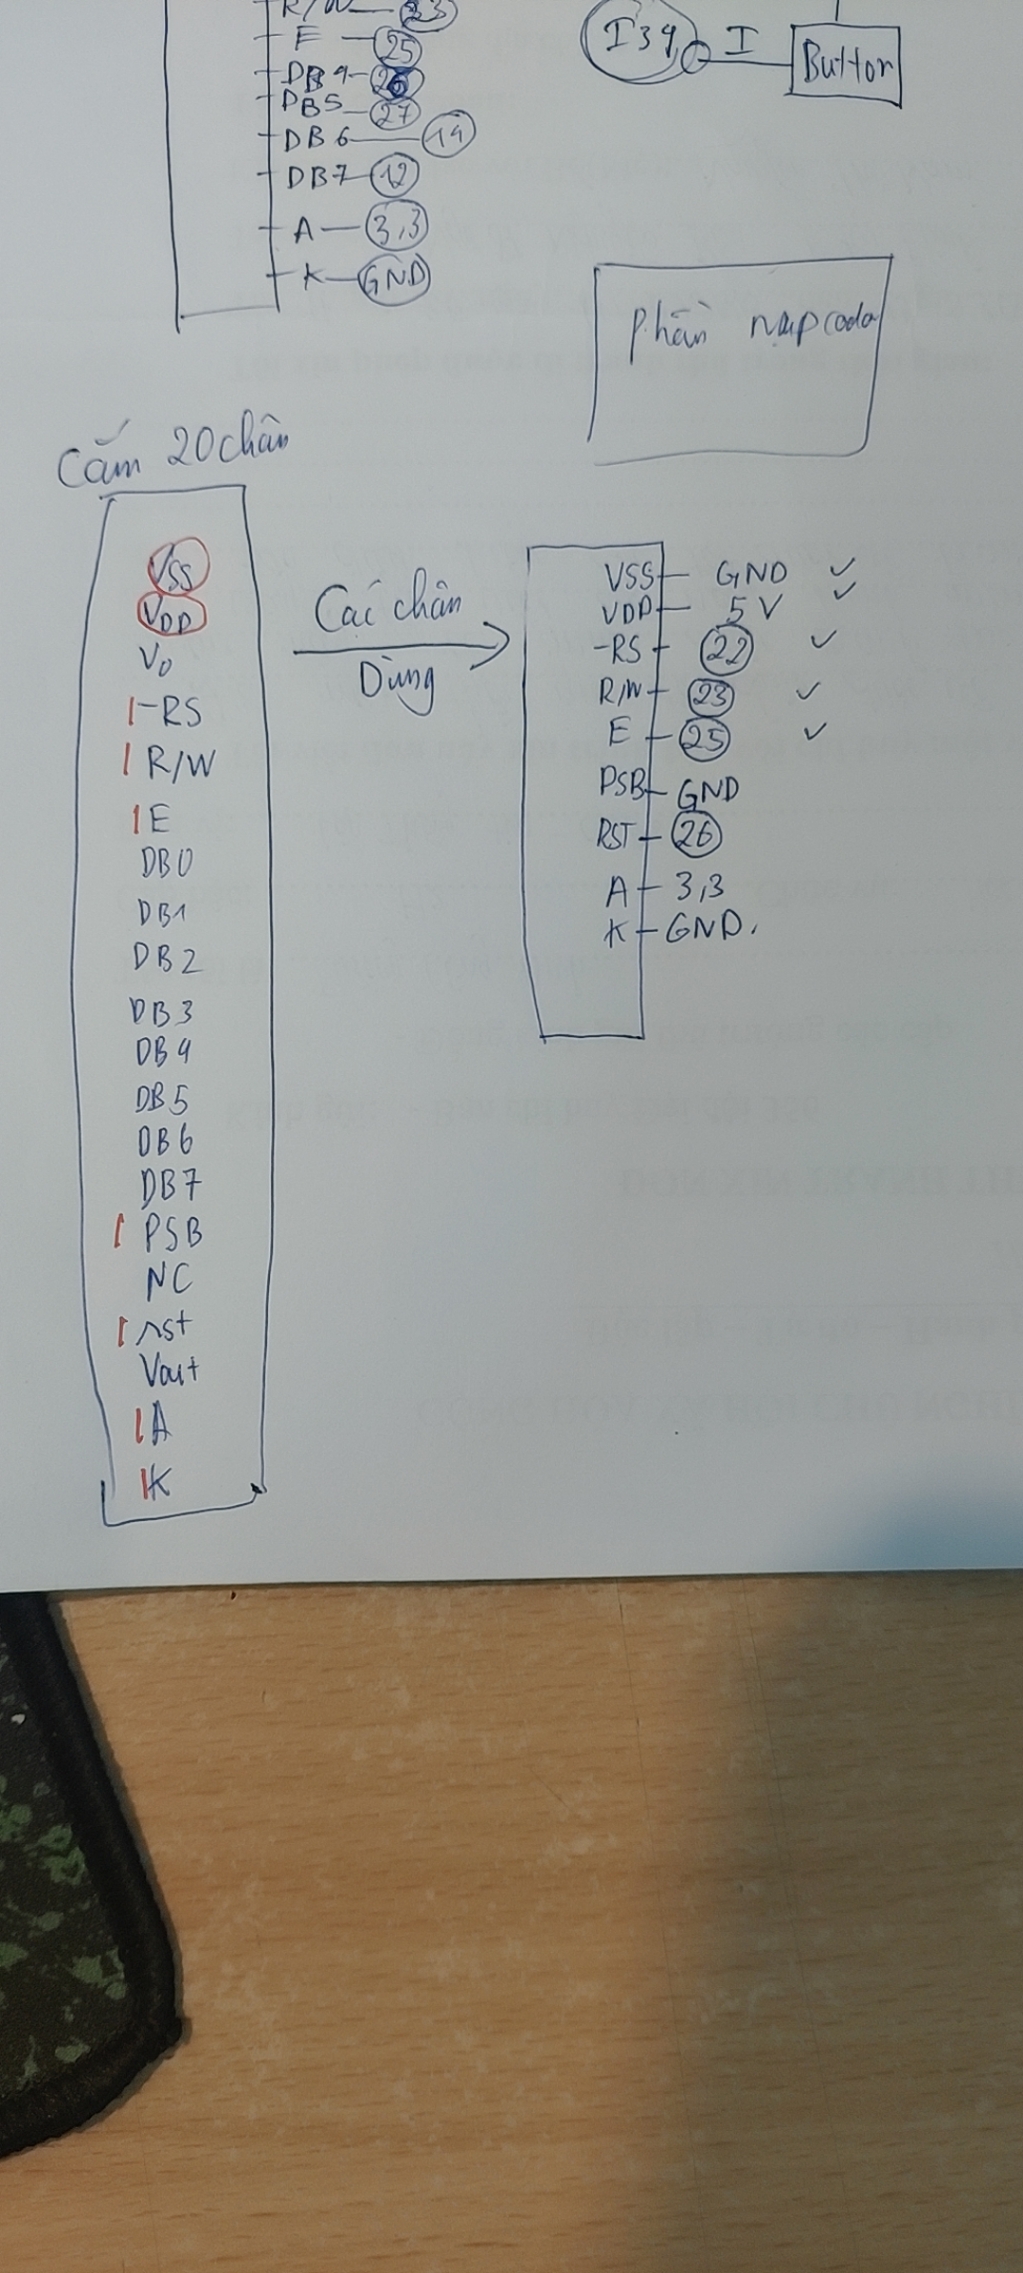 R/W 23
E 25
DB4 26
DB5 27
DB6 14
DB7 12
A 3,3
K GND
I34 I Button
Phần nạp code
Cắm 20 chân
VSS
VDD
V0
-RS
R/W
E
DB0
DB1
DB2
DB3
DB4
DB5
DB6
DB7
PSB
NC
rst
Vout
A
K
Các chân
Dùng
VSS GND ✓
VDD 5V ✓
-RS 22 ✓
R/W 23 ✓
E 25 ✓
PSB GND
RST 26
A 3,3
K GND.